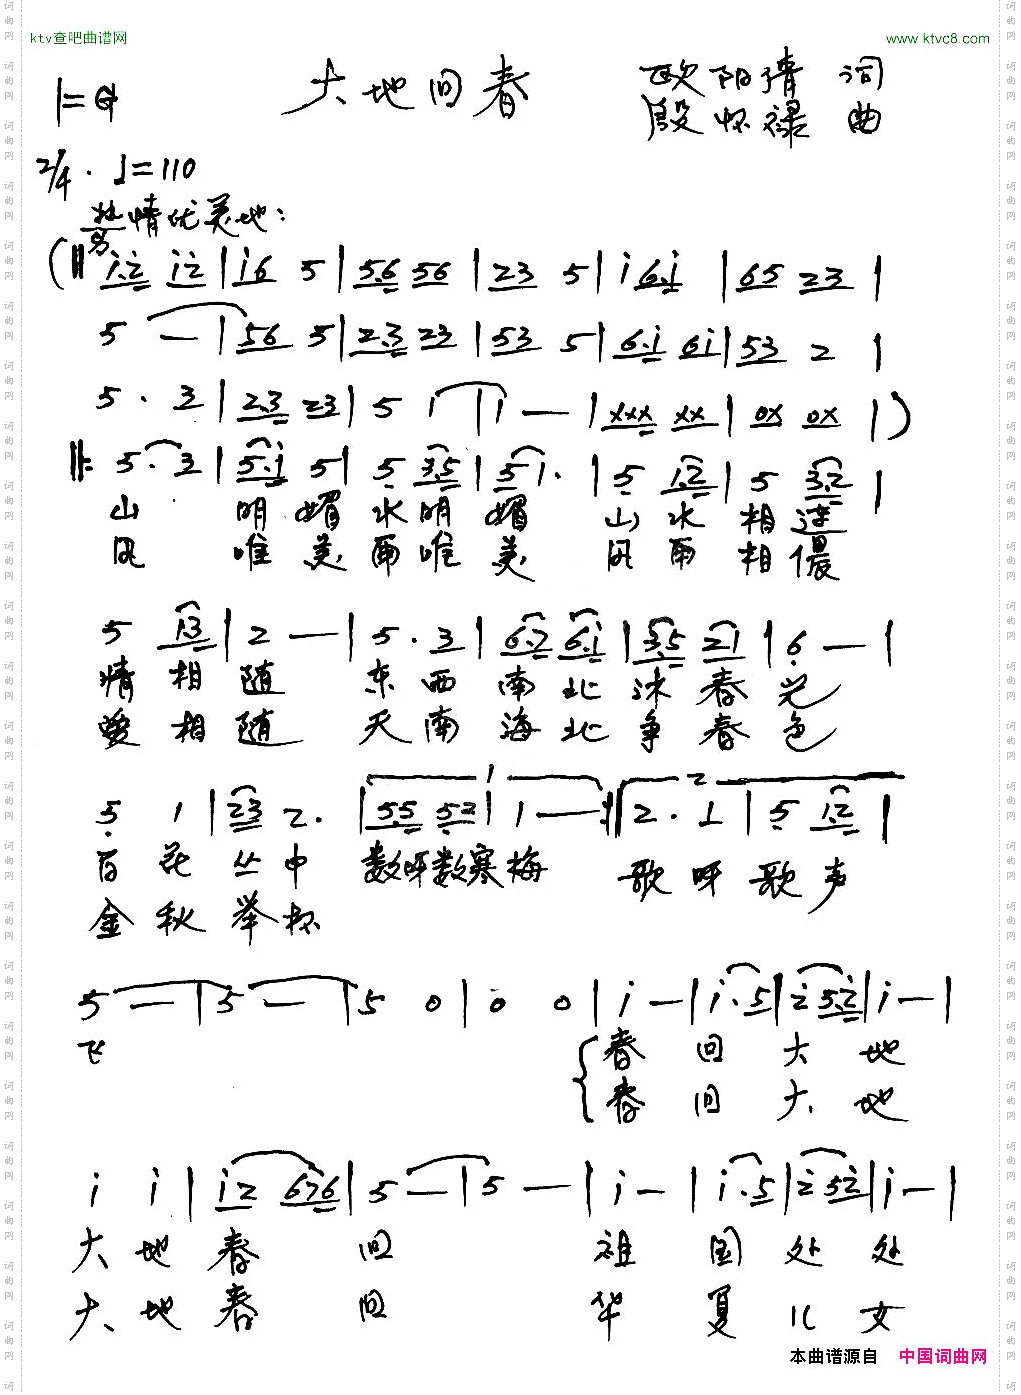 ktv查吧曲谱网 www.ktvc8.com
1=G 大地回春 欧阳清 词
殷怀禄 曲
2/4 · ♩=110
热情优美地:
(‖ i.2 i2 | i6 5 | 5.6 56 | 23 5 | i 6.i | 65 23 |
5 — | 56 5 | 2.3 23 | 53 5 | 6.i 6i | 53 2 |
5 · 3 | 2.3 23 | 5 1 | 1 — | xxx xx | 0x 0x |)
‖: 5 · 3 | 5.i 5 | 5 3.5 | 5 1· | 5 1.2 | 5 3.2 |
山 明 媚 水 明 媚 山 水 相 连
风 唯 美 雨 唯 美 风 雨 相 偎
5 13 | 2 — | 5 · 3 | 6.2 6.i | 3.5 21 | 6 — |
情 相 随 东 西 南 北 沐 春 光
爱 相 随 天 南 海 北 争 春 色
5 1 | 23 2· | 5.5 52 | 1 — :‖ 2 · 1 | 5 1.2 |
百 花 丛 中 数呀数寒梅 歌 呀 歌 声
金 秋 举 杯
5 — | 5 — | 5 0 | 0 0 | i — | i · 5 | 2 5.2 | i — |
飞 春 回 大 地
春 回 大 地
i i | i2 676 | 5 — | 5 — | i — | i · 5 | 2 52 | i — |
大 地 春 回 祖 国 处 处
大 地 春 回 华 夏 儿 女
本曲谱源自 中国词曲网